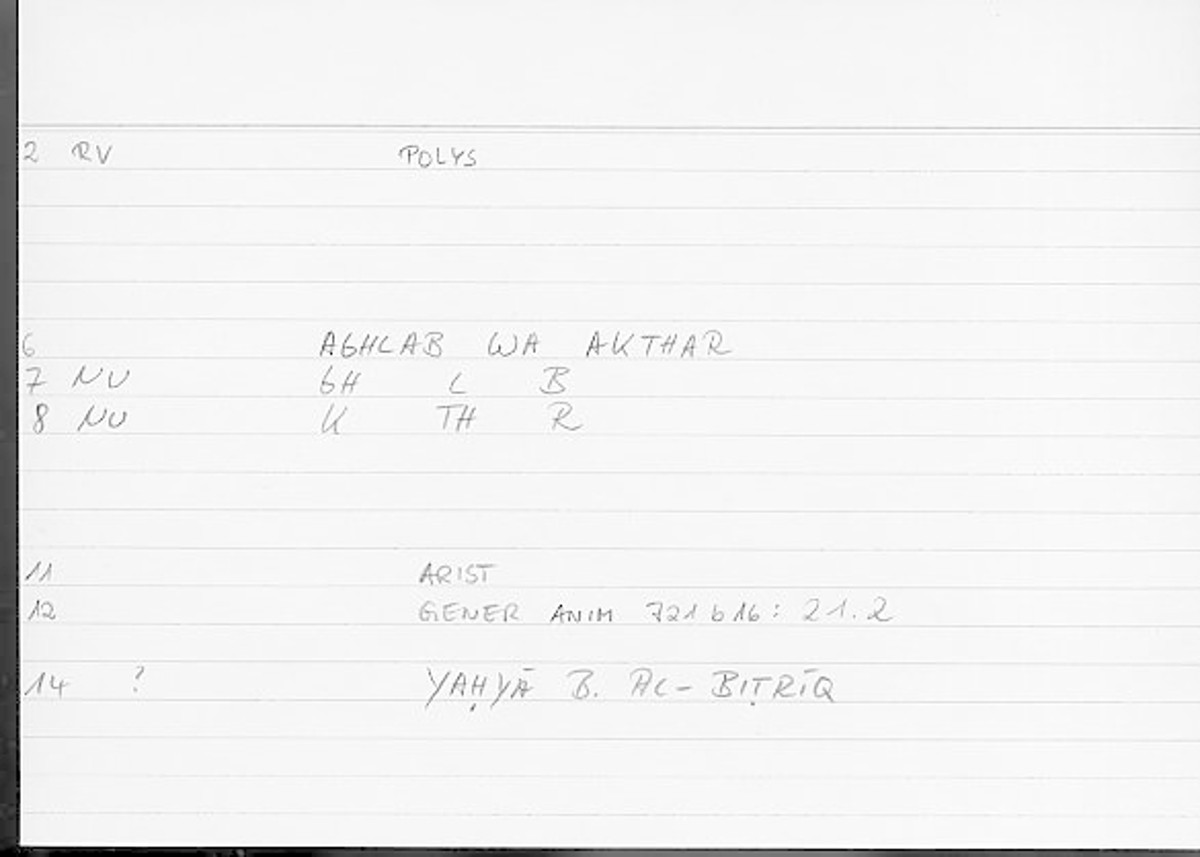 2 RV POLYS
6 AGHLAB WA AKTHAR
7 NU GH L B
8 NU K TH R
11 ARIST
12 GENER ANIM 721 b 16: 21.2
14 ? YAḤYĀ B. AL-BIṬRĪQ